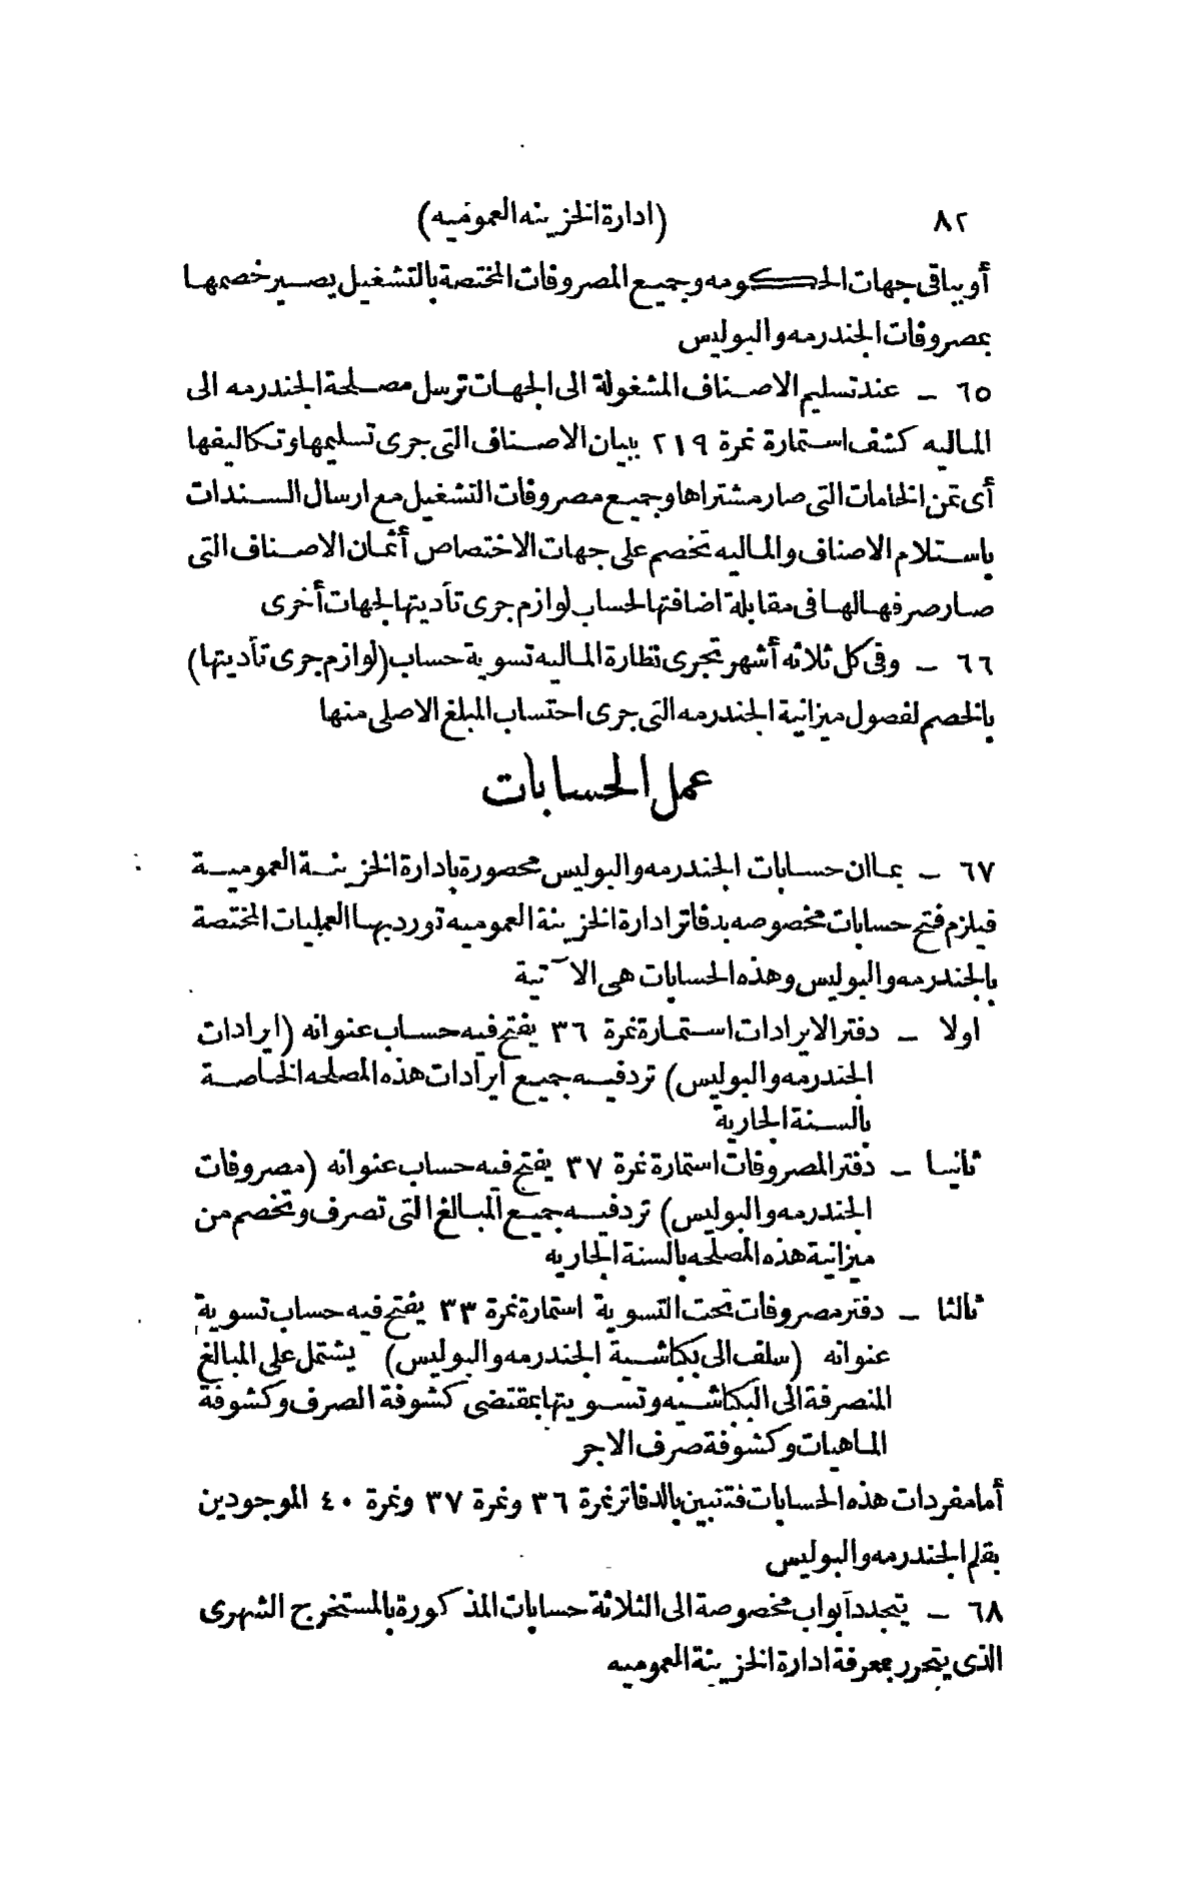 ٨٢
(ادارة الخزينه العموميه)
أو بباقى جهات الحكومه وجميع المصروفات المختصة بالتشغيل يصير خصمها
بمصروفات الجندرمه والبوليس
٦٥ – عند تسليم الاصناف المشغولة الى الجهات ترسل مصلحة الجندرمه الى
الماليه كشف استمارة نمرة ٢١٩ ببيان الاصناف التى جرى تسليمها وتكاليفها
أى ثمن الخامات التى صار مشتراها وجميع مصروفات التشغيل مع ارسال السندات
باستلام الاصناف والماليه تخصم على جهات الاختصاص أثمان الاصناف التى
صار صرفها لها فى مقابلة اضافتها لحساب لوازم جرى تأديتها لجهات أخرى
٦٦ – وفى كل ثلاثه أشهر تجرى نظارة الماليه تسوية حساب (لوازم جرى تأديتها)
بالخصم لفصول ميزانية الجندرمه التى جرى احتساب المبلغ الاصلى منها
عمل الحسابات
٦٧ – بما ان حسابات الجندرمه والبوليس محصورة بادارة الخزينة العمومية
فيلزم فتح حسابات مخصوصه بدفاتر ادارة الخزينة العموميه تورد بها العمليات المختصة
بالجندرمه والبوليس وهذه الحسابات هى الآتية
اولا – دفتر الايرادات استمارة نمرة ٣٦ يفتح فيه حساب عنوانه (ايرادات
الجندرمه والبوليس) ترد فيه جميع ايرادات هذه المصلحه الخاصة
بالسنة الجارية
ثانيا – دفتر المصروفات استمارة نمرة ٣٧ يفتح فيه حساب عنوانه (مصروفات
الجندرمه والبوليس) ترد فيه جميع المبالغ التى تصرف وتخصم من
ميزانية هذه المصلحه بالسنة الجاريه
ثالثا – دفتر مصروفات تحت التسوية استمارة نمرة ٣٣ يفتح فيه حساب تسوية
عنوانه (سلف الى بكباشية الجندرمه والبوليس) يشتمل على المبالغ
المنصرفة الى البكباشيه وتسويتها بمقتضى كشوفة الصرف وكشوفة
الماهيات وكشوفة صرف الاجر
أما مفردات هذه الحسابات فتتبين بالدفاتر نمرة ٣٦ ونمرة ٣٧ ونمرة ٤٠ الموجودين
بقلم الجندرمه والبوليس
٦٨ – يتجدد أبواب مخصوصة الى الثلاثة حسابات المذكورة بالمستخرج الشهرى
الذى يتحرر بمعرفة ادارة الخزينة العموميه